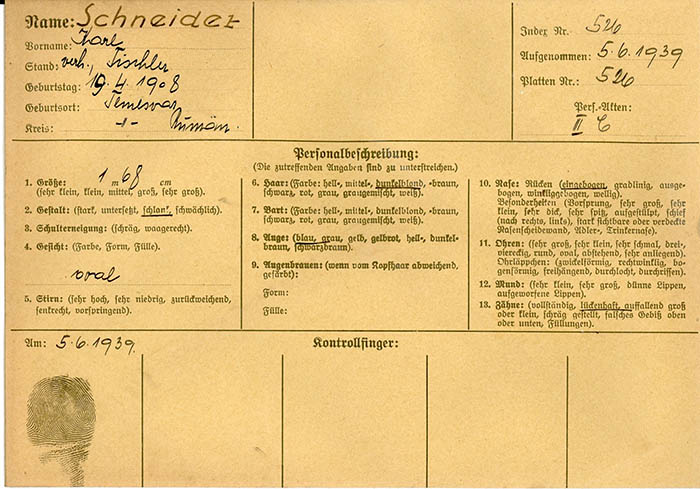 Name: Schneider
Vorname: Karl
Stand: verh., Tischler
Geburtstag: 19.4.1908
Geburtsort: Temesvar
Kreis: -"- Rumän.
Index Nr. 526
Aufgenommen: 5.6.1939
Platten Nr.: 526
Perf.-Akten:
II C
Personalbeschreibung:
(Die zutreffenden Angaben sind zu unterstreichen.)
1. Größe: 1 m 68 cm
(sehr klein, klein, mittel, groß, sehr groß).
2. Gestalt: (stark, untersetzt, schlank, schwächlich).
3. Schulterneigung: (schräg, waagerecht).
4. Gesicht: (Farbe, Form, Fülle).
oval
5. Stirn: (sehr hoch, sehr niedrig, zurückweichend,
senkrecht, vorspringend).
6. Haar: (Farbe: hell-, mittel-, dunkelblond, -braun,
schwarz, rot, grau, graugemischt, weiß).
7. Bart: (Farbe: hell-, mittel-, dunkelblond, -braun,
schwarz, rot, grau, graugemischt, weiß).
8. Auge: (blau, grau, gelb, gelbrot, hell-, dunkel-
braun, schwarzbraun).
9. Augenbrauen: (wenn vom Kopfhaar abweichend,
gefärbt):
Form:
Fülle:
10. Nase: Rücken (eingebogen, gradlinig, ausge-
bogen, winkliggebogen, wellig).
Besonderheiten (Vorsprung, sehr groß, sehr
klein, sehr dick, sehr spitz, aufgestülpt, schief
(nach rechts, links), stark sichtbare oder verdeckte
Nasenscheidewand, Adler-, Trinkernase).
11. Ohren: (sehr groß, sehr klein, sehr schmal, drei-,
viereckig, rund, oval, abstehend, sehr anliegend).
Ohrläppchen: (zwickelförmig, rechtwinklig, bo-
genförmig, freihängend, durchlocht, durchrissen).
12. Mund: (sehr klein, sehr groß, dünne Lippen,
aufgeworfene Lippen).
13. Zähne: (vollständig, lückenhaft, auffallend groß
oder klein, schräg gestellt, falsches Gebiß oben
oder unten, Füllungen).
Am: 5.6.1939.
Kontrollfinger: